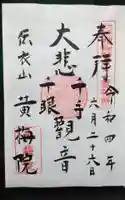 奉拝
令和四年
二月二十六日
大悲
千手
千眼
觀音
伝衣山
黄梅院